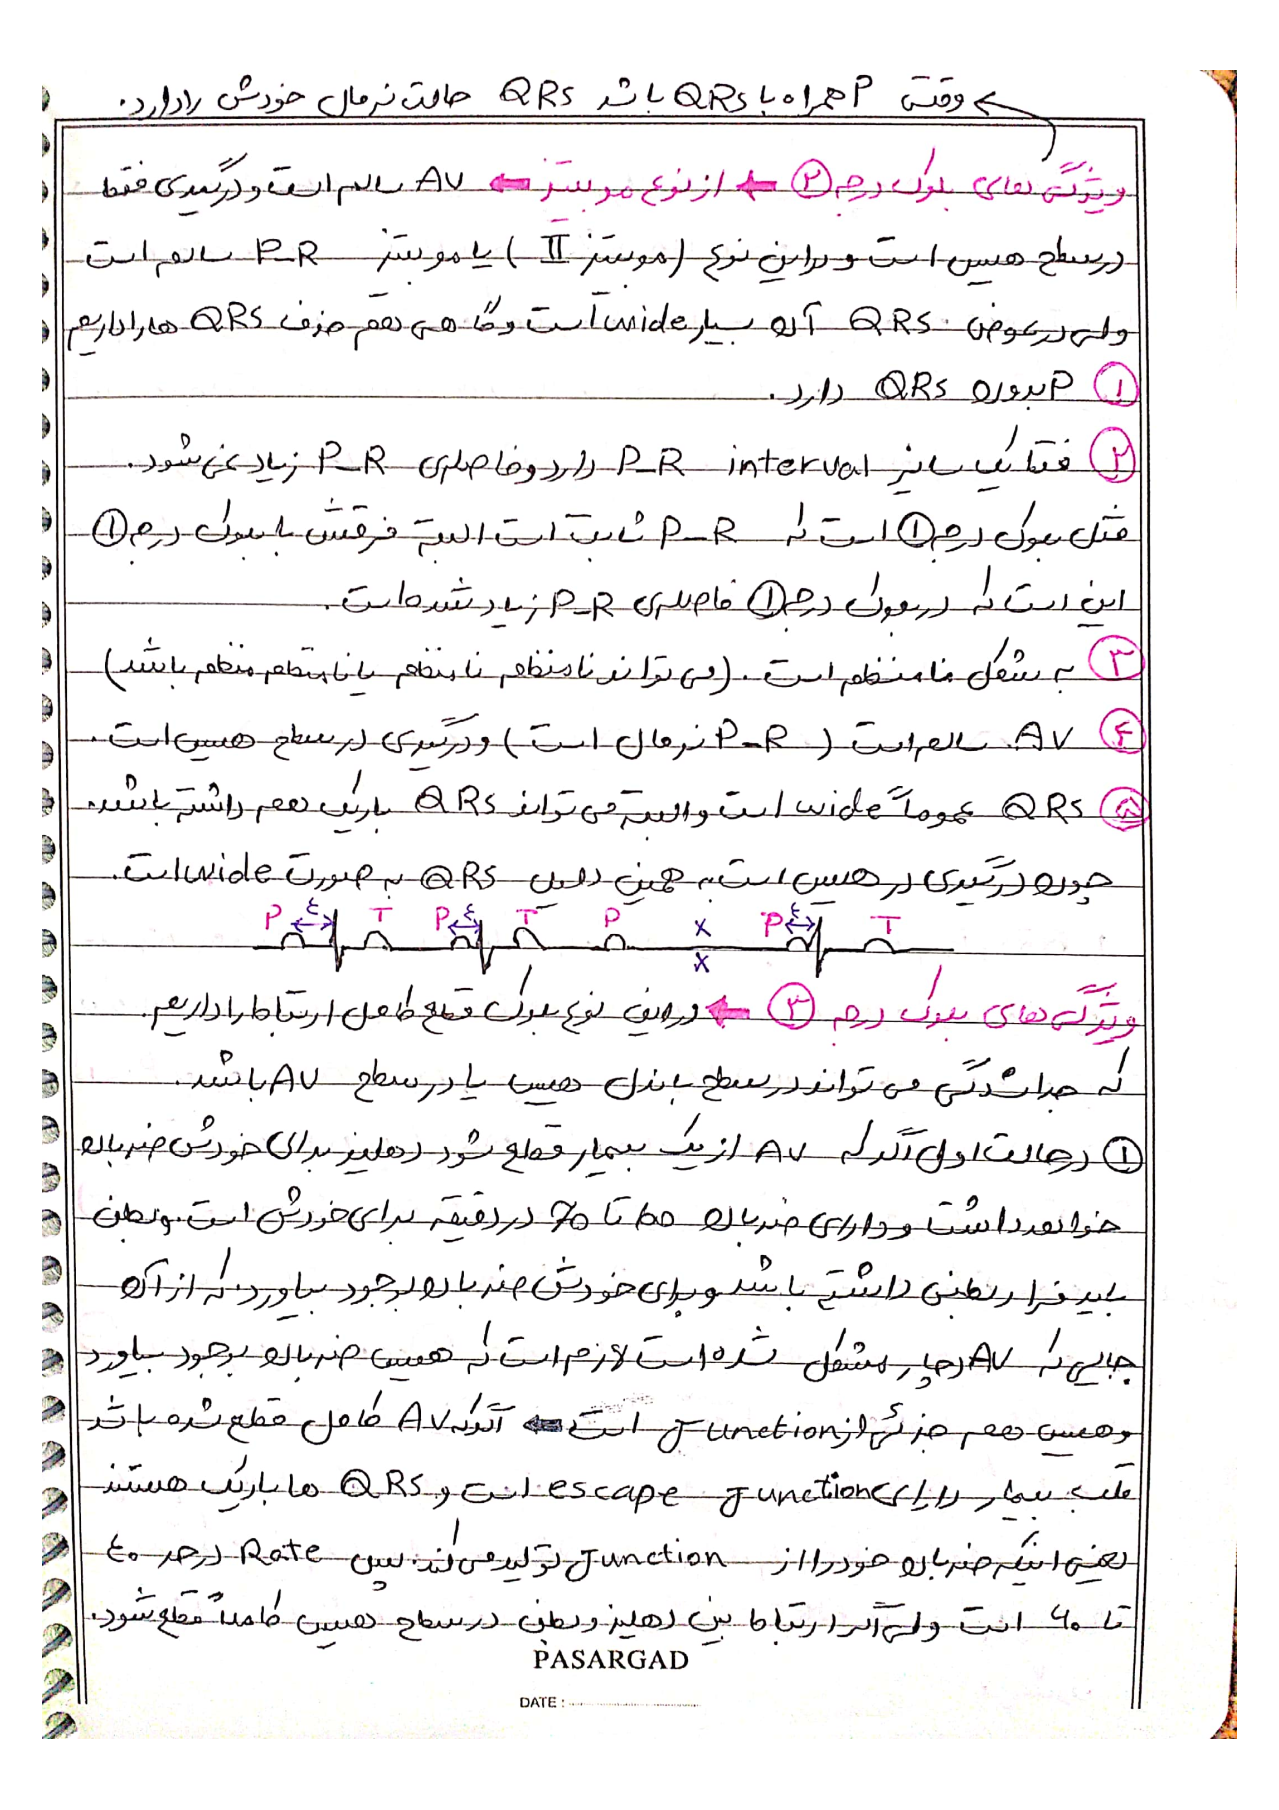 وقتی P همراه با QRs باشد QRs حالت نرمال خودش را دارد.
ویژگی های بلوک درجه ۲ ← از نوع موبیتز ← AV سالم است و درگیری فقط
در سطح هیس است و در این نوع (موبیتز II) یا موبیتز P-R سالم است
ولی در عوض QRs آن بسیار wide است و گاهی هم حذف QRs ها را داریم
۱ P بدون QRs دارد.
۲ فقط یک سایز P-R interval دارد و فاصله‌ی P-R زیاد نمی شود.
مثل بلوک درجه ۱ است که P-R ثابت است البته فرقش با بلوک درجه ۱
این است که در بلوک درجه ۱ فاصله‌ی P-R زیاد شده است.
۳ به شکل نامنظم است. (می تواند نامنظم نامنظم یا نامنظم منظم باشد)
۴ AV سالم است (P-R نرمال است) و درگیری در سطح هیس است.
۵ QRs عموماً wide است و البته می تواند QRs باریک هم داشته باشد.
چون درگیری در هیس است به همین دلیل QRs به صورت wide است.
P ٤ T P ٤ T P X X P ٤ T
ویژگی های بلوک درجه ۳ ← در این نوع بلوک قطع کامل ارتباط را داریم.
که جداشدگی می تواند در سطح باندل هیس یا در سطح AV باشد.
۱ در حالت اول اگر که AV از یک بیمار قطع شود دهلیز برای خودش ضربان
خواهد داشت و دارای ضربان ۶۰ تا ۹۰ در دقیقه برای خودش است. و بطن
باید فرار بطنی داشته باشد و برای خودش ضربان بوجود بیاورد. که از آن
جایی که AV دچار مشکل شده است لازم است که هیس ضربان بوجود بیاورد
و هیس هم جزئی از Junction است ← اگر که AV کامل قطع شده باشد
قلب بیمار دارای escape Junction است و QRs ها باریک هستند
یعنی اینکه ضربان خود را از Junction تولید می کند. پس Rate در حد ٤۰
تا ۶۰ است ولی اگر ارتباط بین دهلیز و بطن در سطح هیس کاملاً قطع شود.
PASARGAD
DATE :